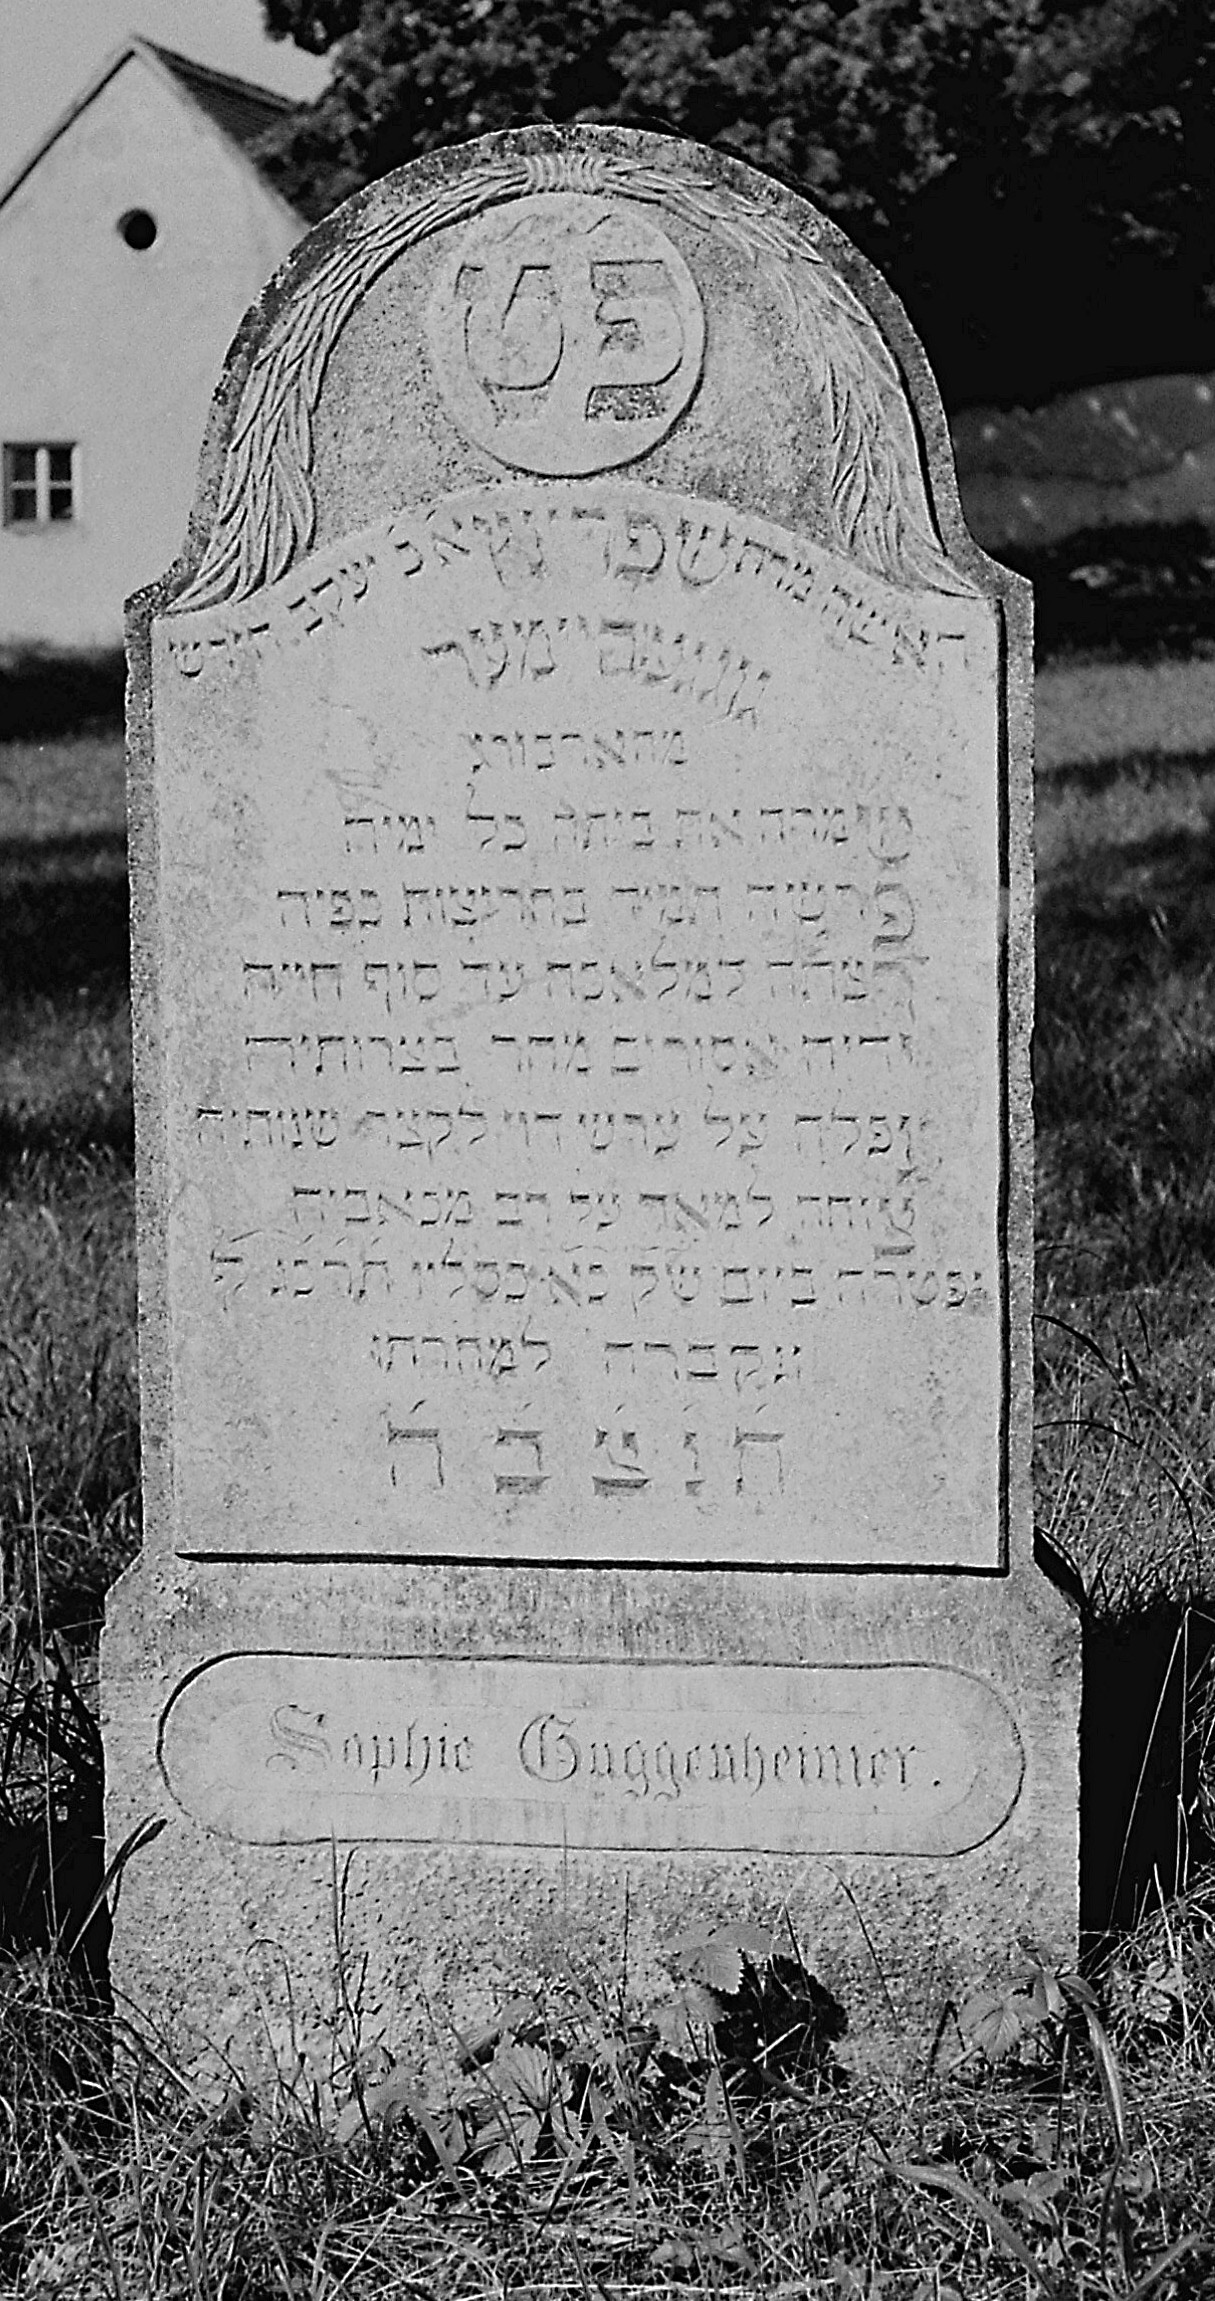 פט
האשה מרת שפרינץ א׳ כ׳ יעקב הירש
גוגענהיימער
מהארבורג
שמרה את ביתה כל ימיה
פרשיה תמיד בחריצות כפיה
רצתה למלאכה עד סוף חייה
ידיה אסורים מהר בצרותיה
נפלה על ערש דוי לקצר שנותיה
צוחה למאד על רב מכאביה
נפטרה ביום ש׳׳ק כ׳א כסליו ת׳ר׳כ׳נ׳ ל׳
ונקברה למחרתו
ת׳ נ׳ צ׳ ב׳ ה׳
Sophie Guggenheimer.